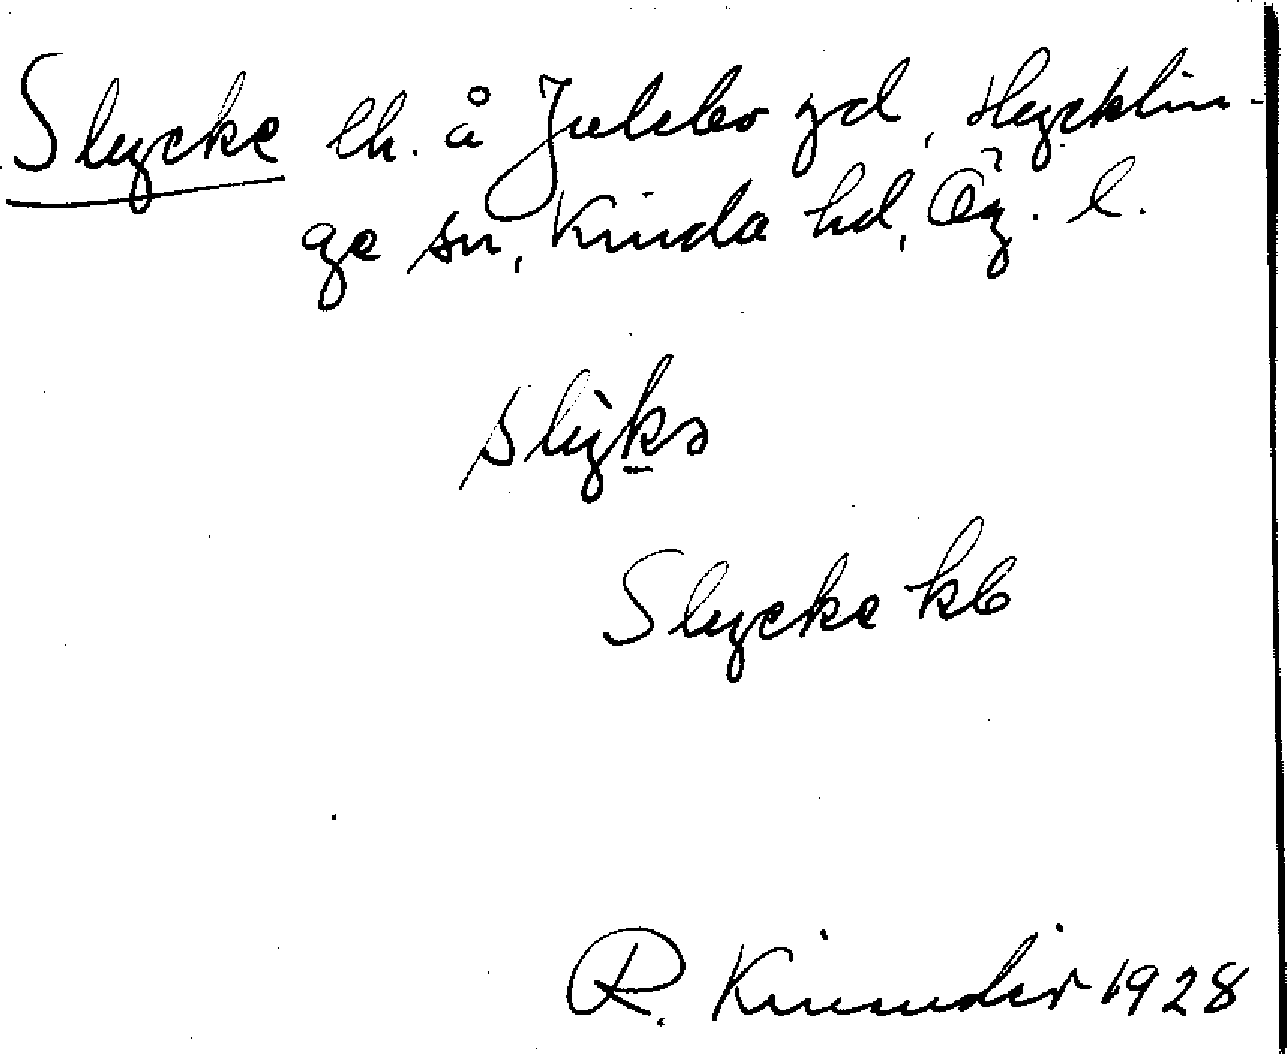 Slycke lh. å Julsbo gd, Hycklin-
ge sn, Kinda hd, Ög. l.
slỳkə
Slycke kb
R. Kinnander 1928